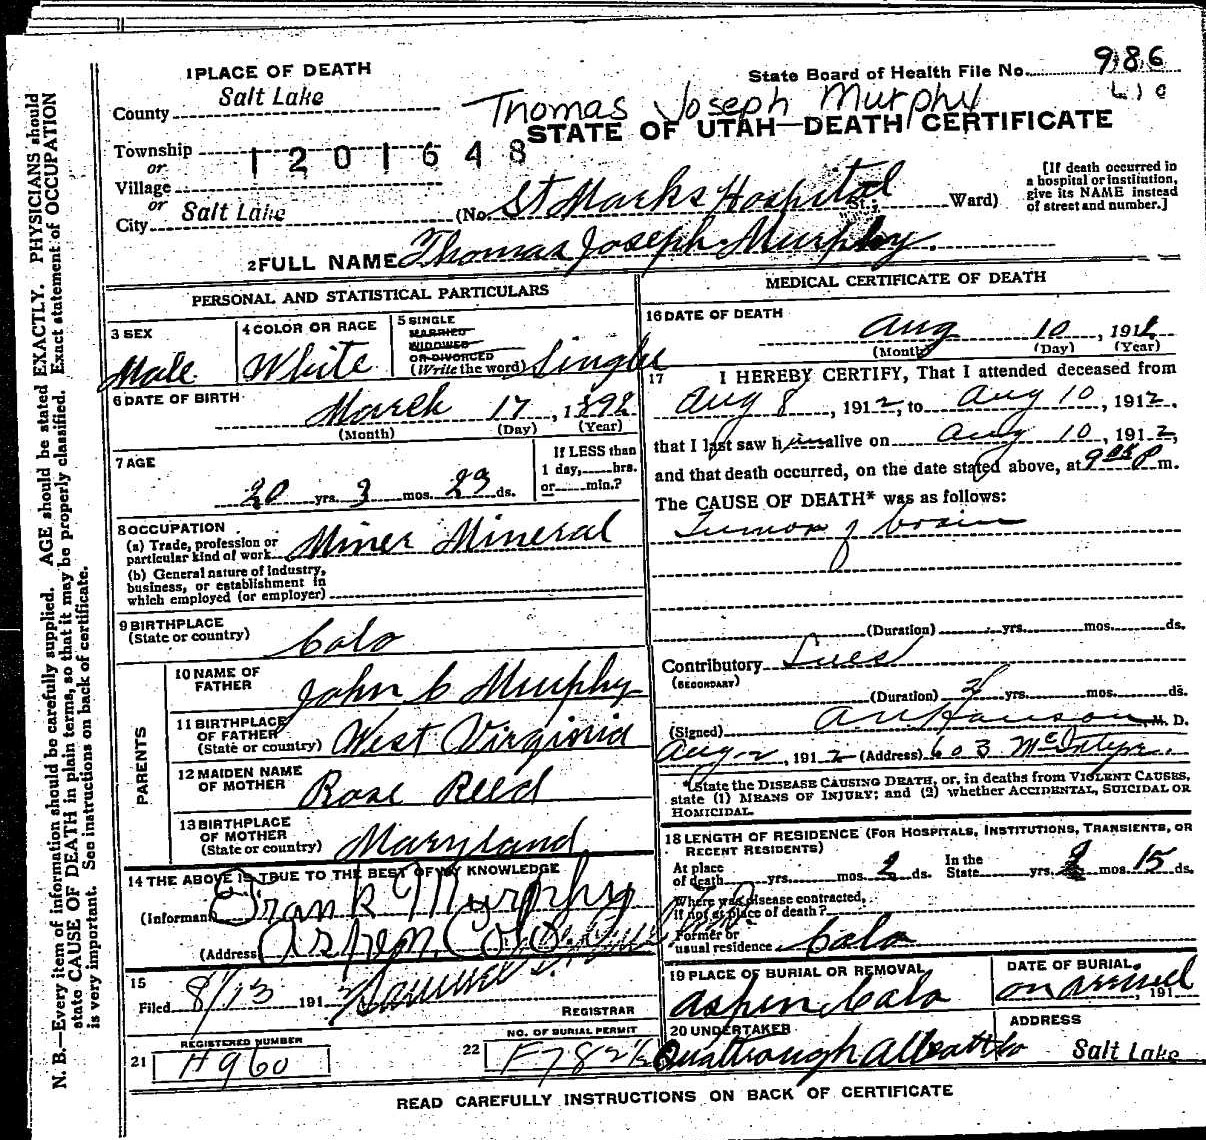 1 PLACE OF DEATH
State Board of Health File No. 986
County Salt Lake
Thomas Joseph Murphy
STATE OF UTAH—DEATH CERTIFICATE
Township
1201648
or
Village
or
City Salt Lake (No. St Marks Hospital St.; Ward)
[If death occurred in
a hospital or institution,
give its NAME instead
of street and number.]
2 FULL NAME Thomas Joseph Murphy.
PERSONAL AND STATISTICAL PARTICULARS
3 SEX
Male.
4 COLOR OR RACE
White
5 SINGLE
MARRIED
WIDOWED
OR DIVORCED
(Write the word) Single
6 DATE OF BIRTH
March 17, 1892
(Month) (Day) (Year)
7 AGE
20 yrs. 3 mos. 23 ds.
If LESS than
1 day, hrs.
or min.?
8 OCCUPATION
(a) Trade, profession or
particular kind of work Miner Mineral
(b) General nature of industry,
business, or establishment in
which employed (or employer)
9 BIRTHPLACE
(State or country) Colo
PARENTS
10 NAME OF
FATHER John C Murphy
11 BIRTHPLACE
OF FATHER
(State or country) West Virginia
12 MAIDEN NAME
OF MOTHER Rose Reed
13 BIRTHPLACE
OF MOTHER
(State or country) Maryland
14 THE ABOVE IS TRUE TO THE BEST OF MY KNOWLEDGE
(Informant) Frank Murphy
(Address) Aspen, Colo
15
Filed 8/13 191
REGISTRAR
21 REGISTERED NUMBER
H960
22 NO. OF BURIAL PERMIT
F782½
MEDICAL CERTIFICATE OF DEATH
16 DATE OF DEATH
Aug 10, 1912
(Month) (Day) (Year)
17 I HEREBY CERTIFY, That I attended deceased from
Aug 8, 1912, to Aug 10, 1912.
that I last saw him alive on Aug 10, 1912,
and that death occurred, on the date stated above, at 9 P m.
The CAUSE OF DEATH* was as follows:
Tumor of brain
(Duration) yrs. mos. ds.
Contributory Lues
(SECONDARY)
(Duration) yrs. mos. ds.
(Signed) M. D.
Aug 1912 (Address) 603 McIntyre.
*State the DISEASE CAUSING DEATH, or, in deaths from VIOLENT CAUSES,
state (1) MEANS OF INJURY; and (2) whether ACCIDENTAL, SUICIDAL OR
HOMICIDAL.
18 LENGTH OF RESIDENCE (FOR HOSPITALS, INSTITUTIONS, TRANSIENTS, OR
RECENT RESIDENTS)
At place
of death yrs. mos. 2 ds.
In the
State yrs. mos. 15 ds.
Where was disease contracted,
if not at place of death?
Former or
usual residence Colo
19 PLACE OF BURIAL OR REMOVAL
Aspen, Colo
DATE OF BURIAL.
191
20 UNDERTAKER
ADDRESS
Salt Lake
READ CAREFULLY INSTRUCTIONS ON BACK OF CERTIFICATE
N. B.—Every item of information should be carefully supplied. AGE should be stated EXACTLY. PHYSICIANS should
state CAUSE OF DEATH in plain terms, so that it may be properly classified. Exact statement of OCCUPATION
is very important. See instructions on back of certificate.